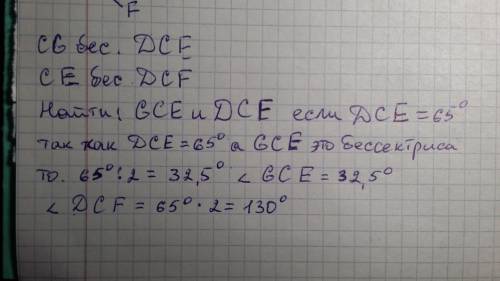 F
CG бес. DCE
CE бес. DCF
Найти: GCE и DCE если DCE = 65°
так как DCE = 65° а GCE это бессектриса
то. 65° : 2 = 32,5° < GCE = 32,5°
< DCF = 65° · 2 = 130°